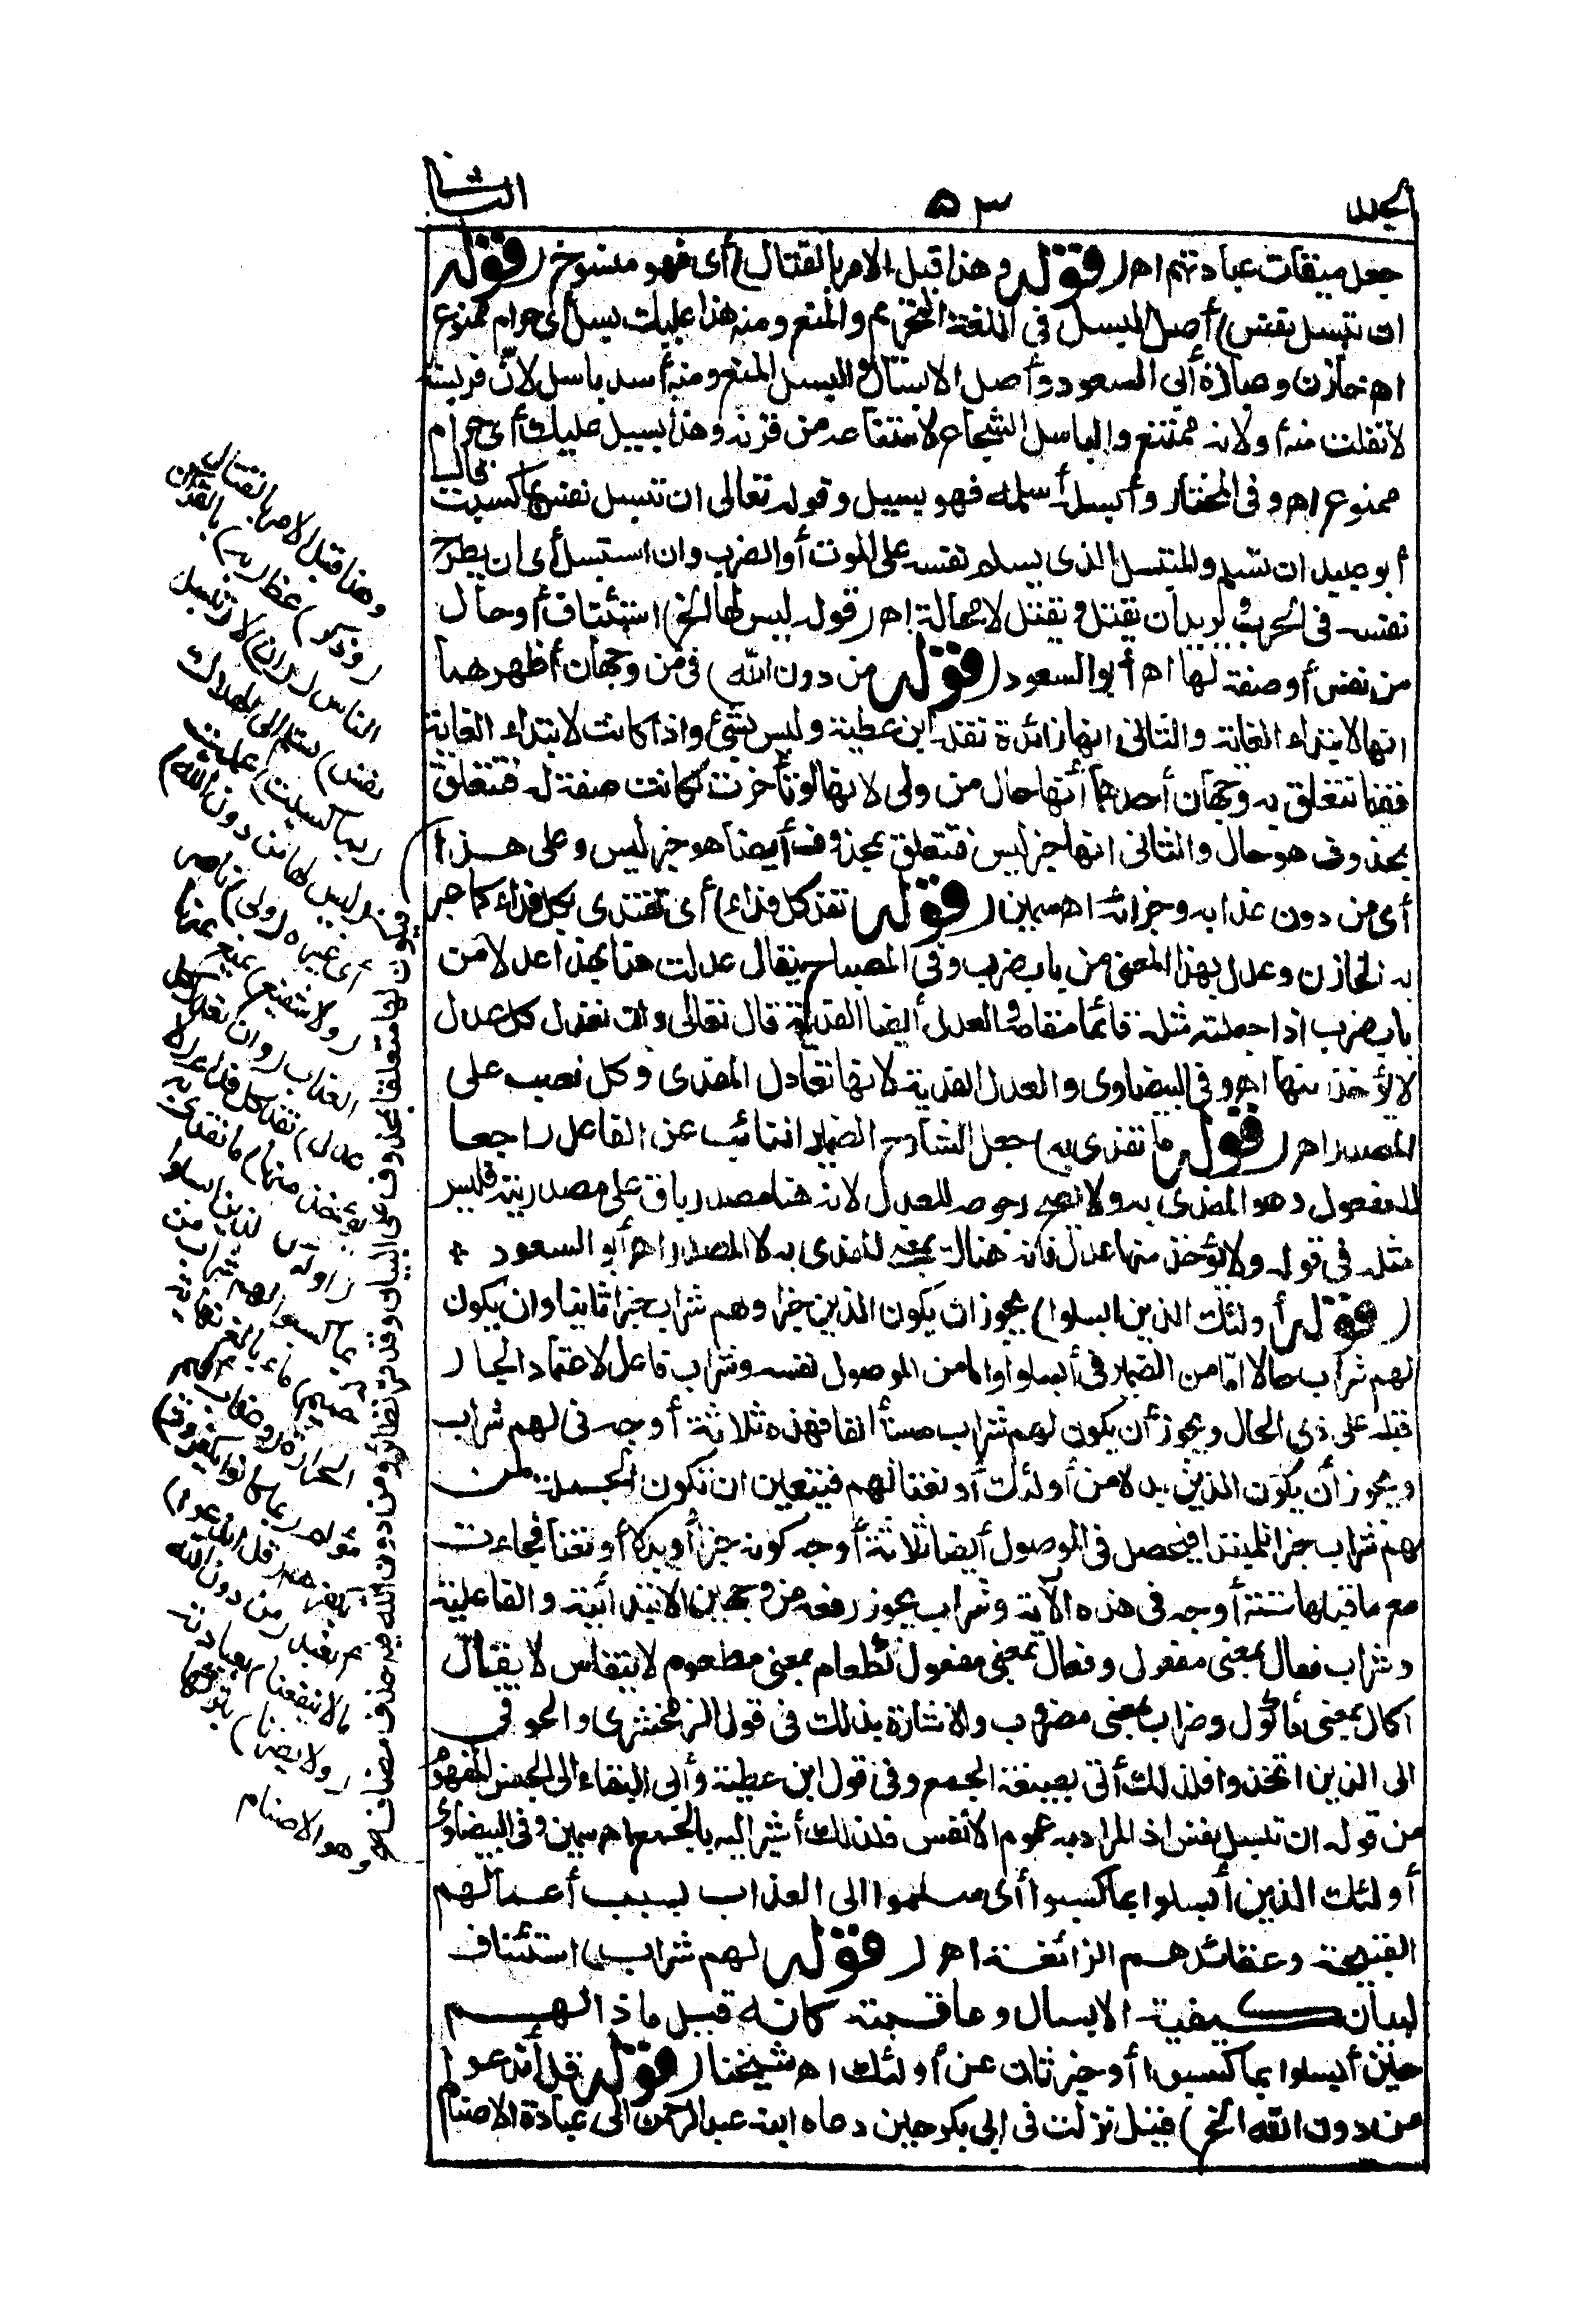 الجلد ٥٣ الثانى
جعل ميقات عبادتهم اهـ (قوله وهذا قبل الامر بالقتال) أى فهو منسوخ (قوله
ان تبسل نفس) أصل البسل فى اللغة التحريم والمنع ومنه هذا عليك بسل أى حرام ممنوع
اهـ خازن وعبارة أبى السعود وأصل الابسال والبسل المنع ومنه أسد باسل لان فريسته
لا تفلت منه أو لانه ممتنع والباسل الشجاع لامتناعه من قرنه وهذا بسل عليك أى حرام
ممنوع اهـ وفى المختار وأبسله أسلمه فهو مبسل وقوله تعالى ان تبسل نفس بما كسبت قال
أبو عبيد ان تسلم والمبتسل الذى يسلم نفسه على الموت أو الضرب وان استبسل أى ان يطرح
نفسه فى الحرب يريد أن يقتل أو يقتل لا محالة اهـ (قوله ليس لها الخ) استئناف أو حال
من نفس أو صفة لها اهـ أبو السعود (قوله من دون الله) فى من وجهان أظهرهما
انها لابتداء الغاية والثانى انها زائدة نقله ابن عطية وليس بشئ واذا كانت لابتداء الغاية
ففيما تتعلق به وجهان أحدهما أنها حال من ولى لانها لو تأخرت لكانت صفة له فتتعلق
بمحذوف هو حال والثانى انها خبر ليس فتتعلق بمحذوف أيضا هو خبر ليس وعلى هذا
أى من دون عذابه وجزائه اهـ سمين (قوله تفد كل فداء) أى تفتدى بكل فداء كما عبر
به الخازن وعدل بهذا المعنى من باب ضرب وفى المصباح يقال عدلت هذا بهذا عدلا من
باب ضرب اذا جعلته مثله قائما مقامه والعدل أيضا الفدية قال تعالى وان تعدل كل عدل
لا يؤخذ منها اهـ وفى البيضاوى والعدل الفدية لانها تعادل المفدى وكل نصب على
المصدر اهـ (قوله ما تفدى به) جعل الشارح الضمير النائب عن الفاعل راجعا
للمفعول وهو المفدى به ولا يصح رجوعه للعدل لانه هنا مصدر باق على مصدريته فليس
مثله فى قوله ولا يؤخذ منها عدل فانه هناك بمعنى المفدى به لا المصدر اهـ أبو السعود
(قوله أولئك الذين ابسلوا) يجوز ان يكون الذين خبرا ولهم شراب خبرا ثانيا وان يكون
لهم شراب حالا اما من الضمير فى أبسلوا واما من الموصول نفسه وشراب فاعل لاعتماد الجار
قبله على ذى الحال ويجوز أن يكون لهم شراب مستأنفا فهذه ثلاثة أوجه فى لهم شراب
ويجوز أن يكون الذين بدلا من أولئك أو نعتا لهم فيتعين ان تكون الجملة من
لهم شراب خبرا للمبتدا فيحصل فى الموصول أيضا ثلاثة أوجه كونه خبرا أو بدلا أو نعتا فجاءت
مع ما قبلها ستة أوجه فى هذه الآية وشراب يجوز رفعه من وجهين الابتدائية والفاعلية
وشراب فعال بمعنى مفعول وفعال بمعنى مفعول كطعام بمعنى مطعوم لا ينقاس لا يقال
اكال بمعنى مأكول وضراب بمعنى مضروب والاشارة بذلك فى قول الزمخشرى والحوفى
الى الذين اتخذوا فلذلك أتى بصيغة الجمع وفى قول ابن عطية وأبى البقاء الى الجنس المفهوم
من قوله ان تبسل نفس اذ المراد به عموم الانفس فلذلك أشير اليه بالجمع اهـ سمين وفى البيضاوى
أولئك الذين أبسلوا بما كسبوا أى سلموا الى العذاب بسبب أعمالهم
القبيحة وعقائدهم الزائغة اهـ (قوله لهم شراب) استئناف
لبيان كيفية الابسال وعاقبته كانه قيل ماذا لهم
حين أبسلوا بما كسبوا أو خبر ثان عن أولئك اهـ شيخنا (قوله قل أندعوا
من دون الله الخ) قيل نزلت فى ابى بكر حين دعاه ابنه عبد الرحمن الى عبادة الاصنام
وهذا قبل الامر بالقتال
(وذكر) عظ (به) بالقرآن
الناس (ان) لا (تبسل
نفس) تسلم الى الهلاك
(بما كسبت) عملت
(ليس لها من دون الله)
أى غيره (ولى) ناصر
(ولا شفيع) يمنع عنها
العذاب (وان تعدل كل
عدل) تفد كل فداء (لا
يؤخذ منها) ما تفدى به
(أولئك الذين أبسلوا
بما كسبوا لهم شراب من
حميم) ماء بالغ نهاية
الحرارة (وعذاب أليم)
مؤلم (بما كانوا يكفرون)
بكفرهم (قل أندعوا)
أنعبد (من دون الله
ما لا ينفعنا) بعبادته
(ولا يضرنا) بتركها
وهو الاصنام
فيكون لها متعلقا بمحذوف على البيان وقد مر نظائره ومن دون الله فيه حذف مضاف